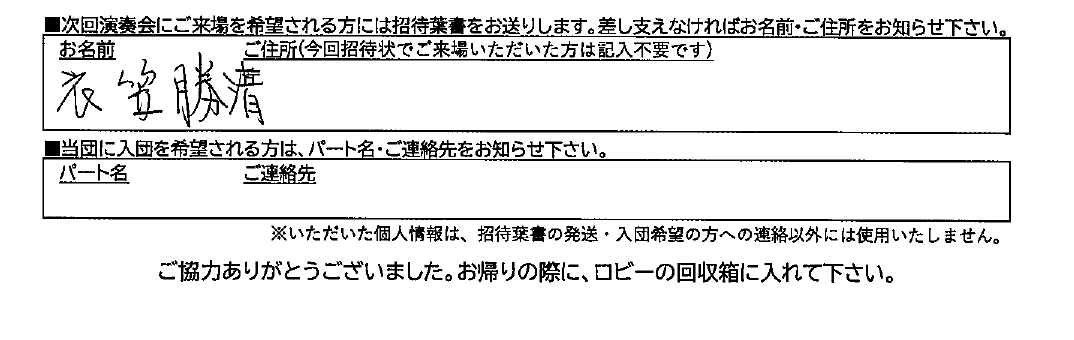 ■次回演奏会にご来場を希望される方には招待葉書をお送りします。差し支えなければお名前・ご住所をお知らせ下さい。
お名前 ご住所(今回招待状でご来場いただいた方は記入不要です)
衣笠勝清
■当団に入団を希望される方は、パート名・ご連絡先をお知らせ下さい。
パート名 ご連絡先
※いただいた個人情報は、招待葉書の発送・入団希望の方への連絡以外には使用いたしません。
ご協力ありがとうございました。お帰りの際に、ロビーの回収箱に入れて下さい。